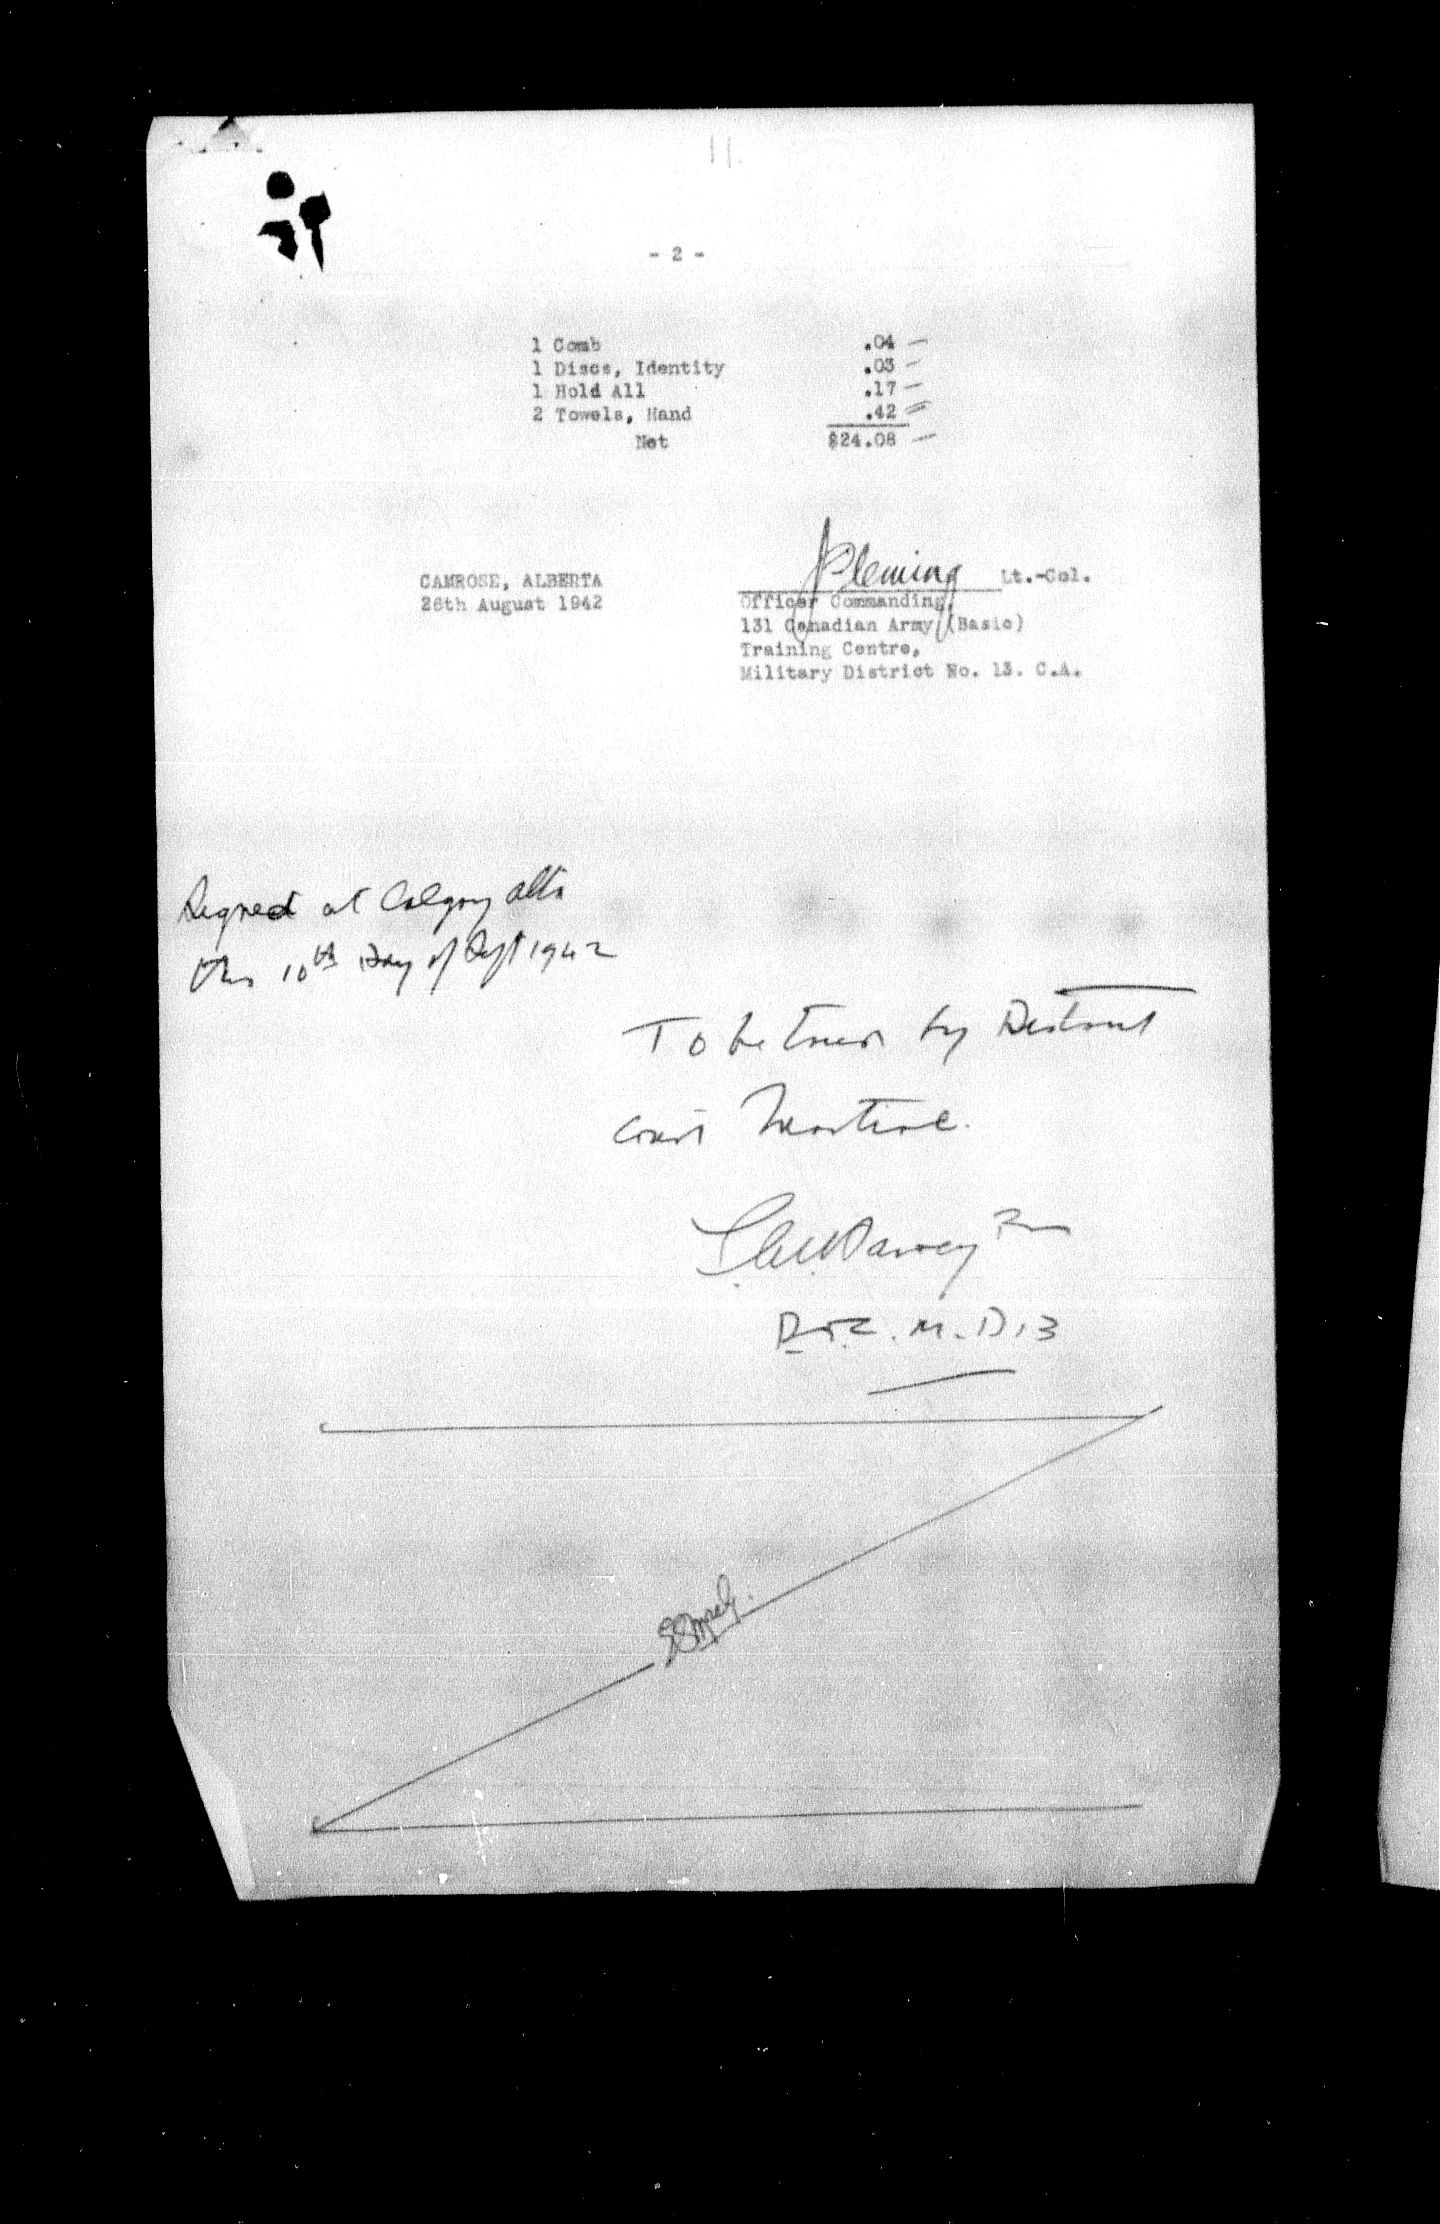 11.
- 2 -
1 Comb .04
1 Discs, Identity .03
1 Hold All .17
2 Towels, Hand .42
Net $24.08
Fleming Lt.-Col.
CAMROSE, ALBERTA
26th August 1942
Officer Commanding,
131 Canadian Army (Basic)
Training Centre,
Military District No. 13. C.A.
Signed at Calgary Alta
this 10th Day of Sept 1942
To be tried by District
Court Martial.
Harvey
D.O.C. M.D 13